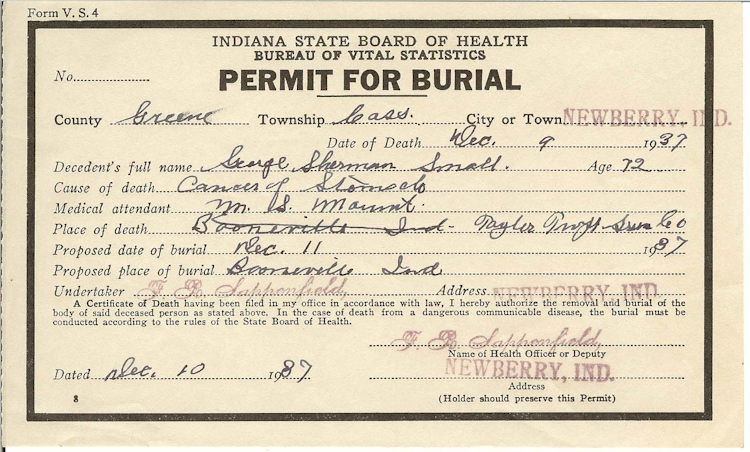 Form V. S. 4
INDIANA STATE BOARD OF HEALTH
BUREAU OF VITAL STATISTICS
No.
PERMIT FOR BURIAL
County Greene Township Cass. City or Town NEWBERRY, IND.
Date of Death Dec. 9 1937
Decedent's full name George Sherman Small. Age 72
Cause of death Cancer of Stomach
Medical attendant M. S. Mount.
Place of death Booneville Ind - Taylor Twp. Co
Proposed date of burial Dec. 11 1937
Proposed place of burial Booneville Ind
Undertaker F. R. Sapponfield, Address NEWBERRY, IND.
A Certificate of Death having been filed in my office in accordance with law, I hereby authorize the removal and burial of the
body of said deceased person as stated above. In the case of death from a dangerous communicable disease, the burial must be
conducted according to the rules of the State Board of Health.
F. R. Sapponfield,
Name of Health Officer or Deputy
Dated Dec. 10 1937
NEWBERRY, IND.
Address
8
(Holder should preserve this Permit)